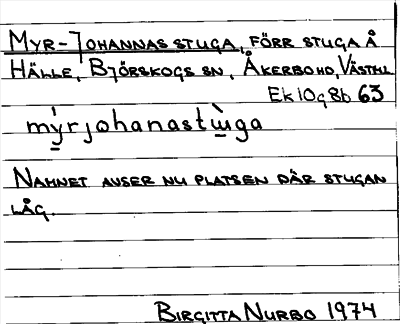 MYR-JOHANNAS STUGA, FÖRR STUGA Å
HÄLLE, BJÖRSKOGS SN, ÅKERBO HD, VÄSTML
Ek 10g8b 63
mýrjohanastùga
NAMNET AVSER NU PLATSEN DÄR STUGAN
LÅG.
BIRGITTA NURBO 1974